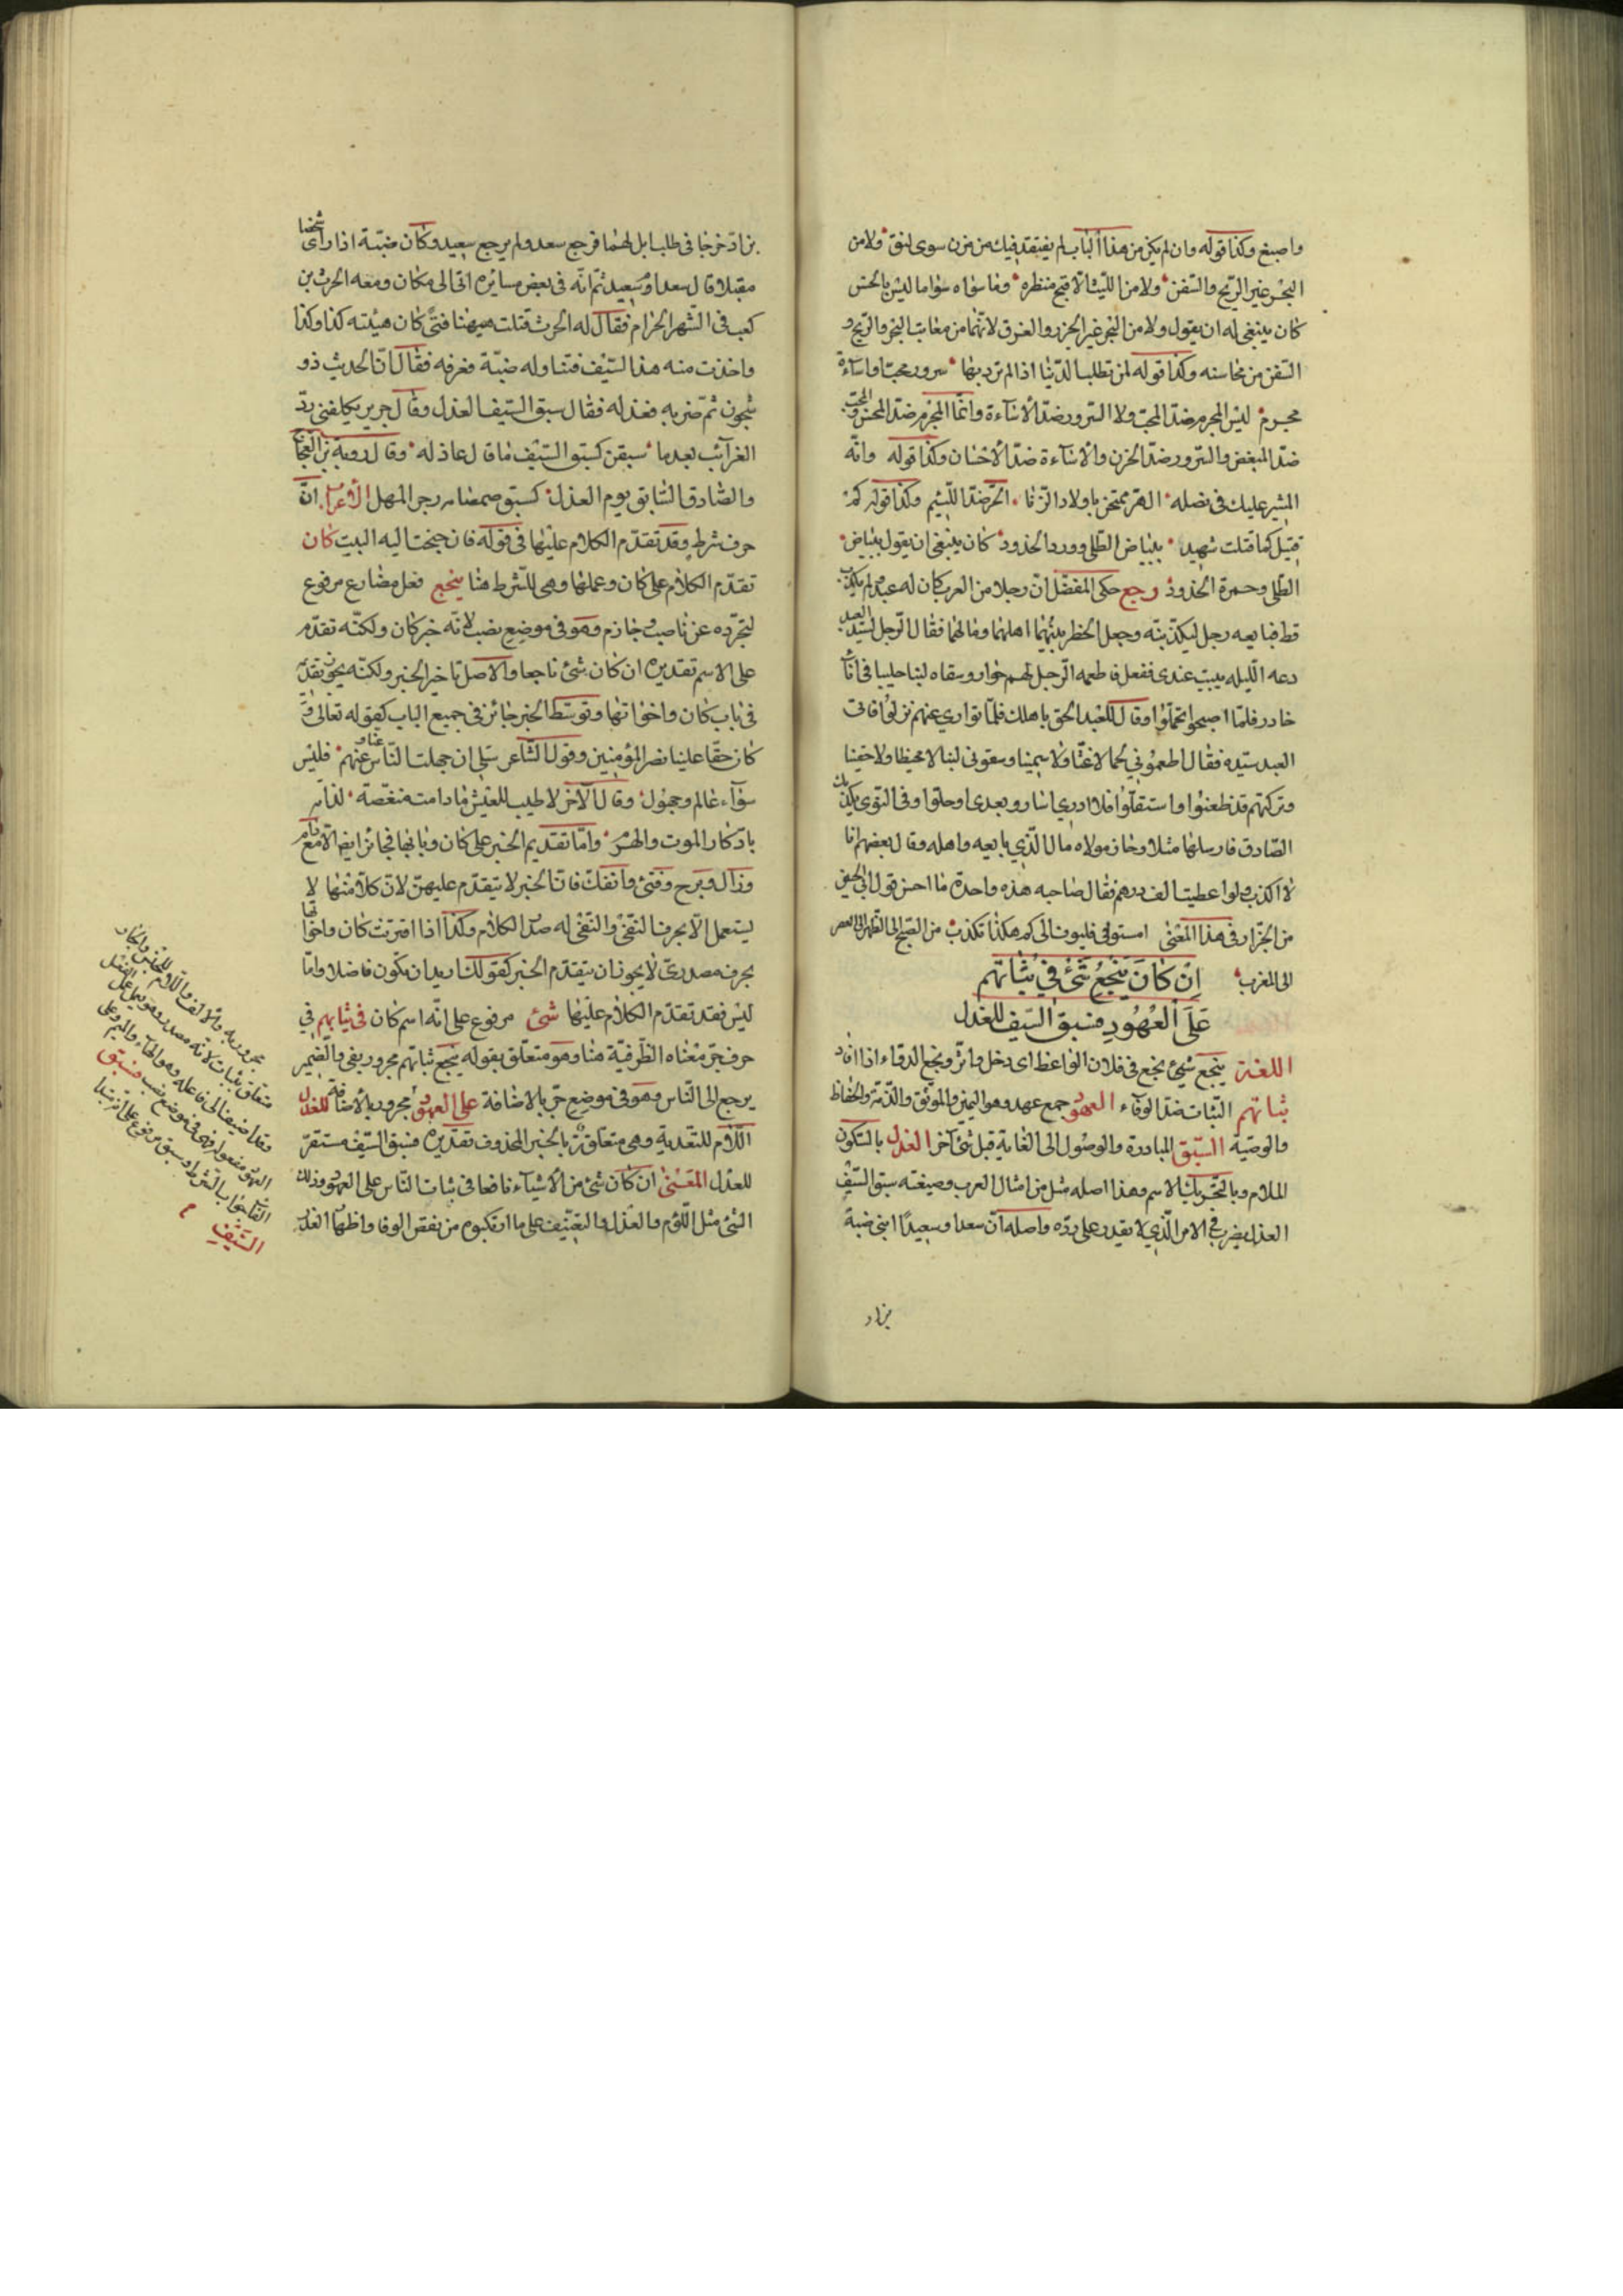 واصبغ وكذا قوله وان لم يكن من هذا الباب لم يفتقد فيك من مزن سوى لنق ولا من
البحر غير الريح والسفن ولا من الليث الا قبح منظره وما سواه سوا ما ليس بالحسن
كان ينبغي له ان يقول ولا من البحر غير الجزر والغرق لانهما من معايب البحر والريح و
السفن من محاسنه وكذا قوله لمن تطلب الدنيا اذا لم ترد بها سرور محب او اساءة
مجرم ليس المجرم ضد المحب ولا السرور ضد الاساءة وانما المجرم ضد المحسن والمحب
ضد المبغض والسرور ضد الحزن والاساءة ضد الاحسان وكذا قوله وانه
المشير عليك في بضله الحر ممتحن باولاد الزنا الحر ضد اللئيم وكذا قوله كم
قتيل كما قتلت شهيد ببياض الطلى وورد الخدود كان ينبغي ان يقول ببياض
الطلى وحمرة الخدود رجع حكى المفضل ان رجلا من العرب كان له عبد لم يكذب
قط فبايعه رجل ليكذبنه وجعل الخطر بينهما اهلهما ومالهما فقال الرجل لسيد العبد
دعه الليله يبيت عندى ففعل فاطعمه الرجل لحم حوار وسقاه لبنا حليبا فى
حازر فلما اصبحوا تحملوا وقال للعبد الحق باهلك فلما توارى عنهم نزلوا فاتى
العبد سيده فقال اطعموني لحما لا غثا ولا سمينا وسقونى لبنا لا محيظا ولا حقينا
وتركتهم قد ظعنوا واستقلوا فلا ادرى اساروا بعدى او حلوا وفى النوى يكذبك
الصادق فارسلها مثلا وحاز مولاه مال الذي بايعه واهله وقال بعضهم انا
لا اكذب ولو اعطيت الف درهم فقال صاحبه هذه واحدة ما احسن قول ابى الحسين
من الجزار فى هذا المعنى امستوفى قليوب الى كم هكذا تكذب من الصبح الى الظهر الى العصر
الى المغرب
ان كان ينجع شئ في ثباتهم
على العهود فسبق السيف للعذل
اللغة ينجع شئ نجع فى فلان الواعظ اى دخل واثر ونجع الدواء اذا افاد
ثباتهم الثبات ضد الوفاء العهود جمع عهد وهو اليمين والموثق والذمة والحفاظ
والوصية السبق المبادرة والوصول الى الغاية قبل شئ آخر العذل بالسكون
الملام وبالتحريك الاسم وهذا اصله مثل من امثال العرب وصيغته سبق السيف
العذل يضرب فى الامر الذي لا يقدر على رده واصله ان سعدا وسعيدا ابنى ضبة
بن اد
بن اد خرجا فى طلب ابل لهما فرجع سعد ولم يرجع سعيد وكان ضبة اذا راى شخصا
مقبلا قال سعد ام سعيد ثم انه فى بعض مسايره اتى الى مكان ومعه الحرث بن
كعب فى الشهر الحرام فقال له الحرث قتلت هيهنا فتى كان هيئته كذا وكذا
واخذت منه هذا السيف فتناوله ضبة فعرفه فقال ان الحديث ذو
شجون ثم ضربه فعذله فقال سبق السيف العذل وقال جرير يكلفنى رد
الغرائب بعد ما سبقن كسبق السيف ما قال عاذله وقال روبة بن العجاج
والصادق السابق يوم العذل كسبق صمصام زجر المهل الاعراب ان
حرف شرط وقد تقدم الكلام عليها فى قوله فان جنحت اليه البيت كان
تقدم الكلام على كان وعملها وهى للشرط هنا ينجع فعل مضارع مرفوع
لتجرده عن ناصب وجازم وهو فى موضع نصب لانه خبر كان ولكنه تقدم
على الاسم تقديره ان كان شئ ناجعا والاصل تاخير الخبر ولكنه يجوز تقديمه
فى باب كان واخواتها وتوسط الخبر جائز فى جميع الباب كقوله تعالى و
كان حقا علينا نصر المؤمنين وقول الشاعر سلى ان جهلت الناس عنا وعنهم فليس
سواء عالم وجهول وقال الآخر لا طيب للعيش ما دامت منغصة لذاته
بادكار الموت والهرم واما تقديم الخبر على كان وبابها فجائز ايضا الا مع مادام
وزال وبرح وفتئ وانفك فان الخبر لا يتقدم عليهن لان كلا منها لا
يستعمل الا بحرف النفى والنفى له صدر الكلام وكذا اذا اقترنت كان واخواتها
بحرف مصدرى لا يجوز ان يتقدم الخبر كقولك اريد ان يكون فاضلا واما
ليس فقد تقدم الكلام عليها شئ مرفوع على انه اسم كان فى ثباتهم في
حرف جر معناه الظرفية هنا وهو متعلق بقوله ينجع ثباتهم مجرور بفى والضمير
يرجع الى الناس وهو فى موضع جر بالاضافة على العهود مجرور بالاضافة للعذل
اللام للتعدية وهى متعلقة بالخبر المحذوف تقديره فسبق السيف مستقر
للعذل المعنى ان كان شئ من الاشياء نافعا فى ثبات الناس على العهود وذلك
الشئ مثل اللوم والعذل والتعنيف على ما ارتكبوه من نقض الوفا واظهار الغدر
مجرور به والالف واللام للجنس والجار
متعلق بثبات لانه مصدر وهو يعمل عمل الفعل
وقد اضيف الى فاعله وهو الهاء والميم وعلى
العهود مفعوله فهى فى موضع نصب فسبق
الفاء جواب الشرط وسبق مرفوع على انه مبتدا
السيف